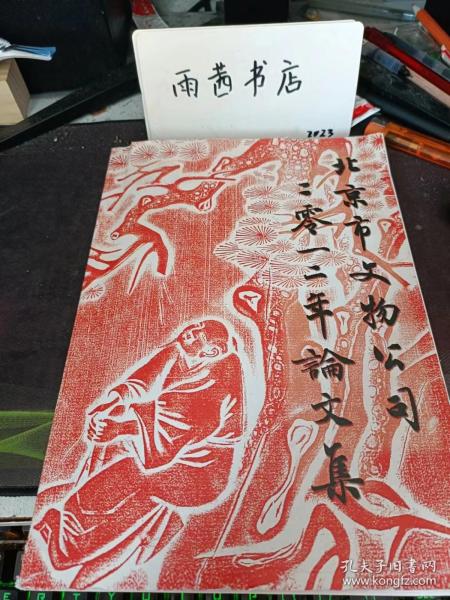 雨茜书店
2023
北京市文物公司
二零一二年論文集
孔夫子旧书网
www.kongfz.com